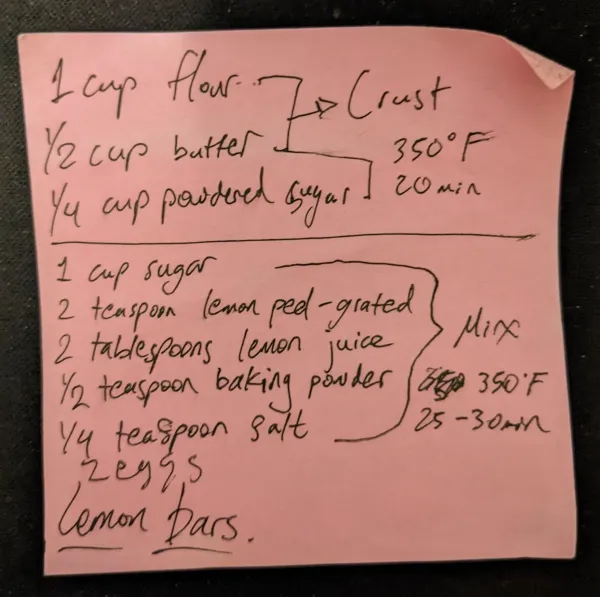 1 cup flour → Crust
1/2 cup butter 350°F
1/4 cup powdered sugar 20 min
1 cup sugar
2 teaspoon lemon peel-grated
2 tablespoons lemon juice Mix
1/2 teaspoon baking powder 350°F
1/4 teaspoon salt 25-30min
2 eggs
Lemon bars.